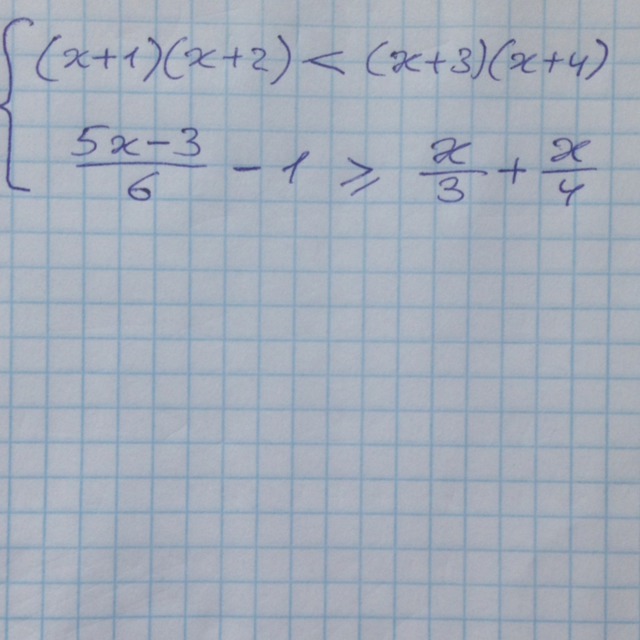 { (x+1)(x+2) < (x+3)(x+4)
(5x-3)/6 - 1 ⩾ x/3 + x/4